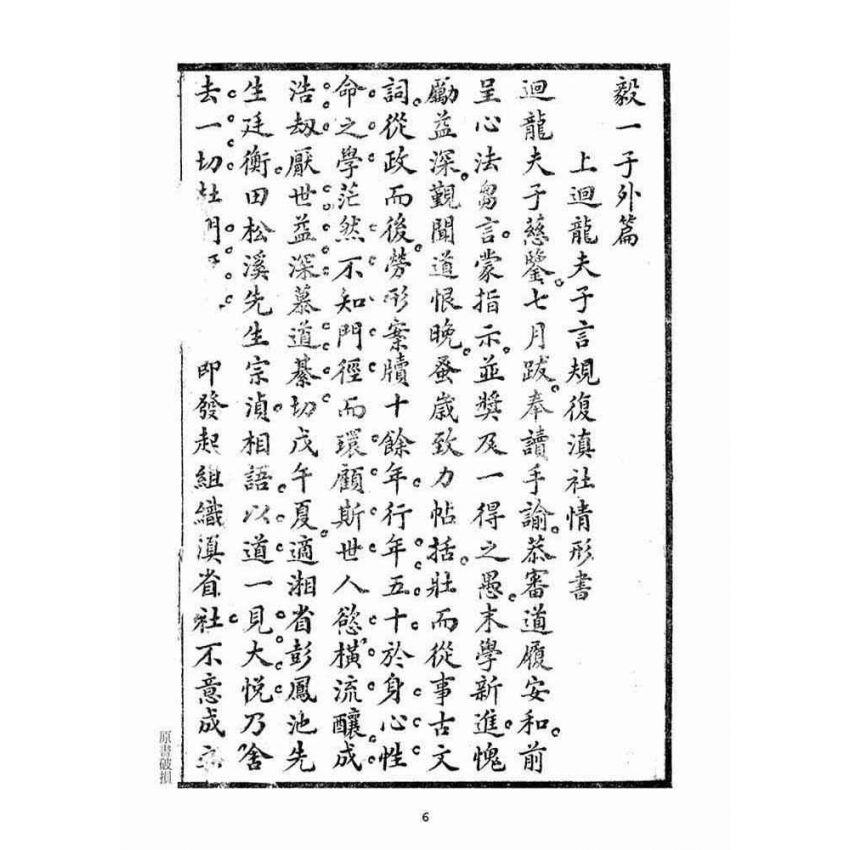 毅一子外篇
上迴龍夫子言規復滇社情形書
迴龍夫子慈鑒。七月跋。奉讀手諭。恭審道履安和。前
呈心法芻言。蒙指示。並獎及一得之愚。末學新進。愧
勵益深。覲聞道恨晚。蚤歲致力帖括。壯而從事古文
詞。從政而後。勞形案牘十餘年。行年五十。於身心性
命之學。茫然不知門徑。而環顧斯世。人慾橫流。釀成
浩劫。厭世益深。慕道綦切。戊午夏。適湘省彭鳳池先
生廷衡。田松溪先生宗湞。相語以道。一見大悅。乃舍
去一切。杜門 即發起組織滇省社。不意成
原書破損
6